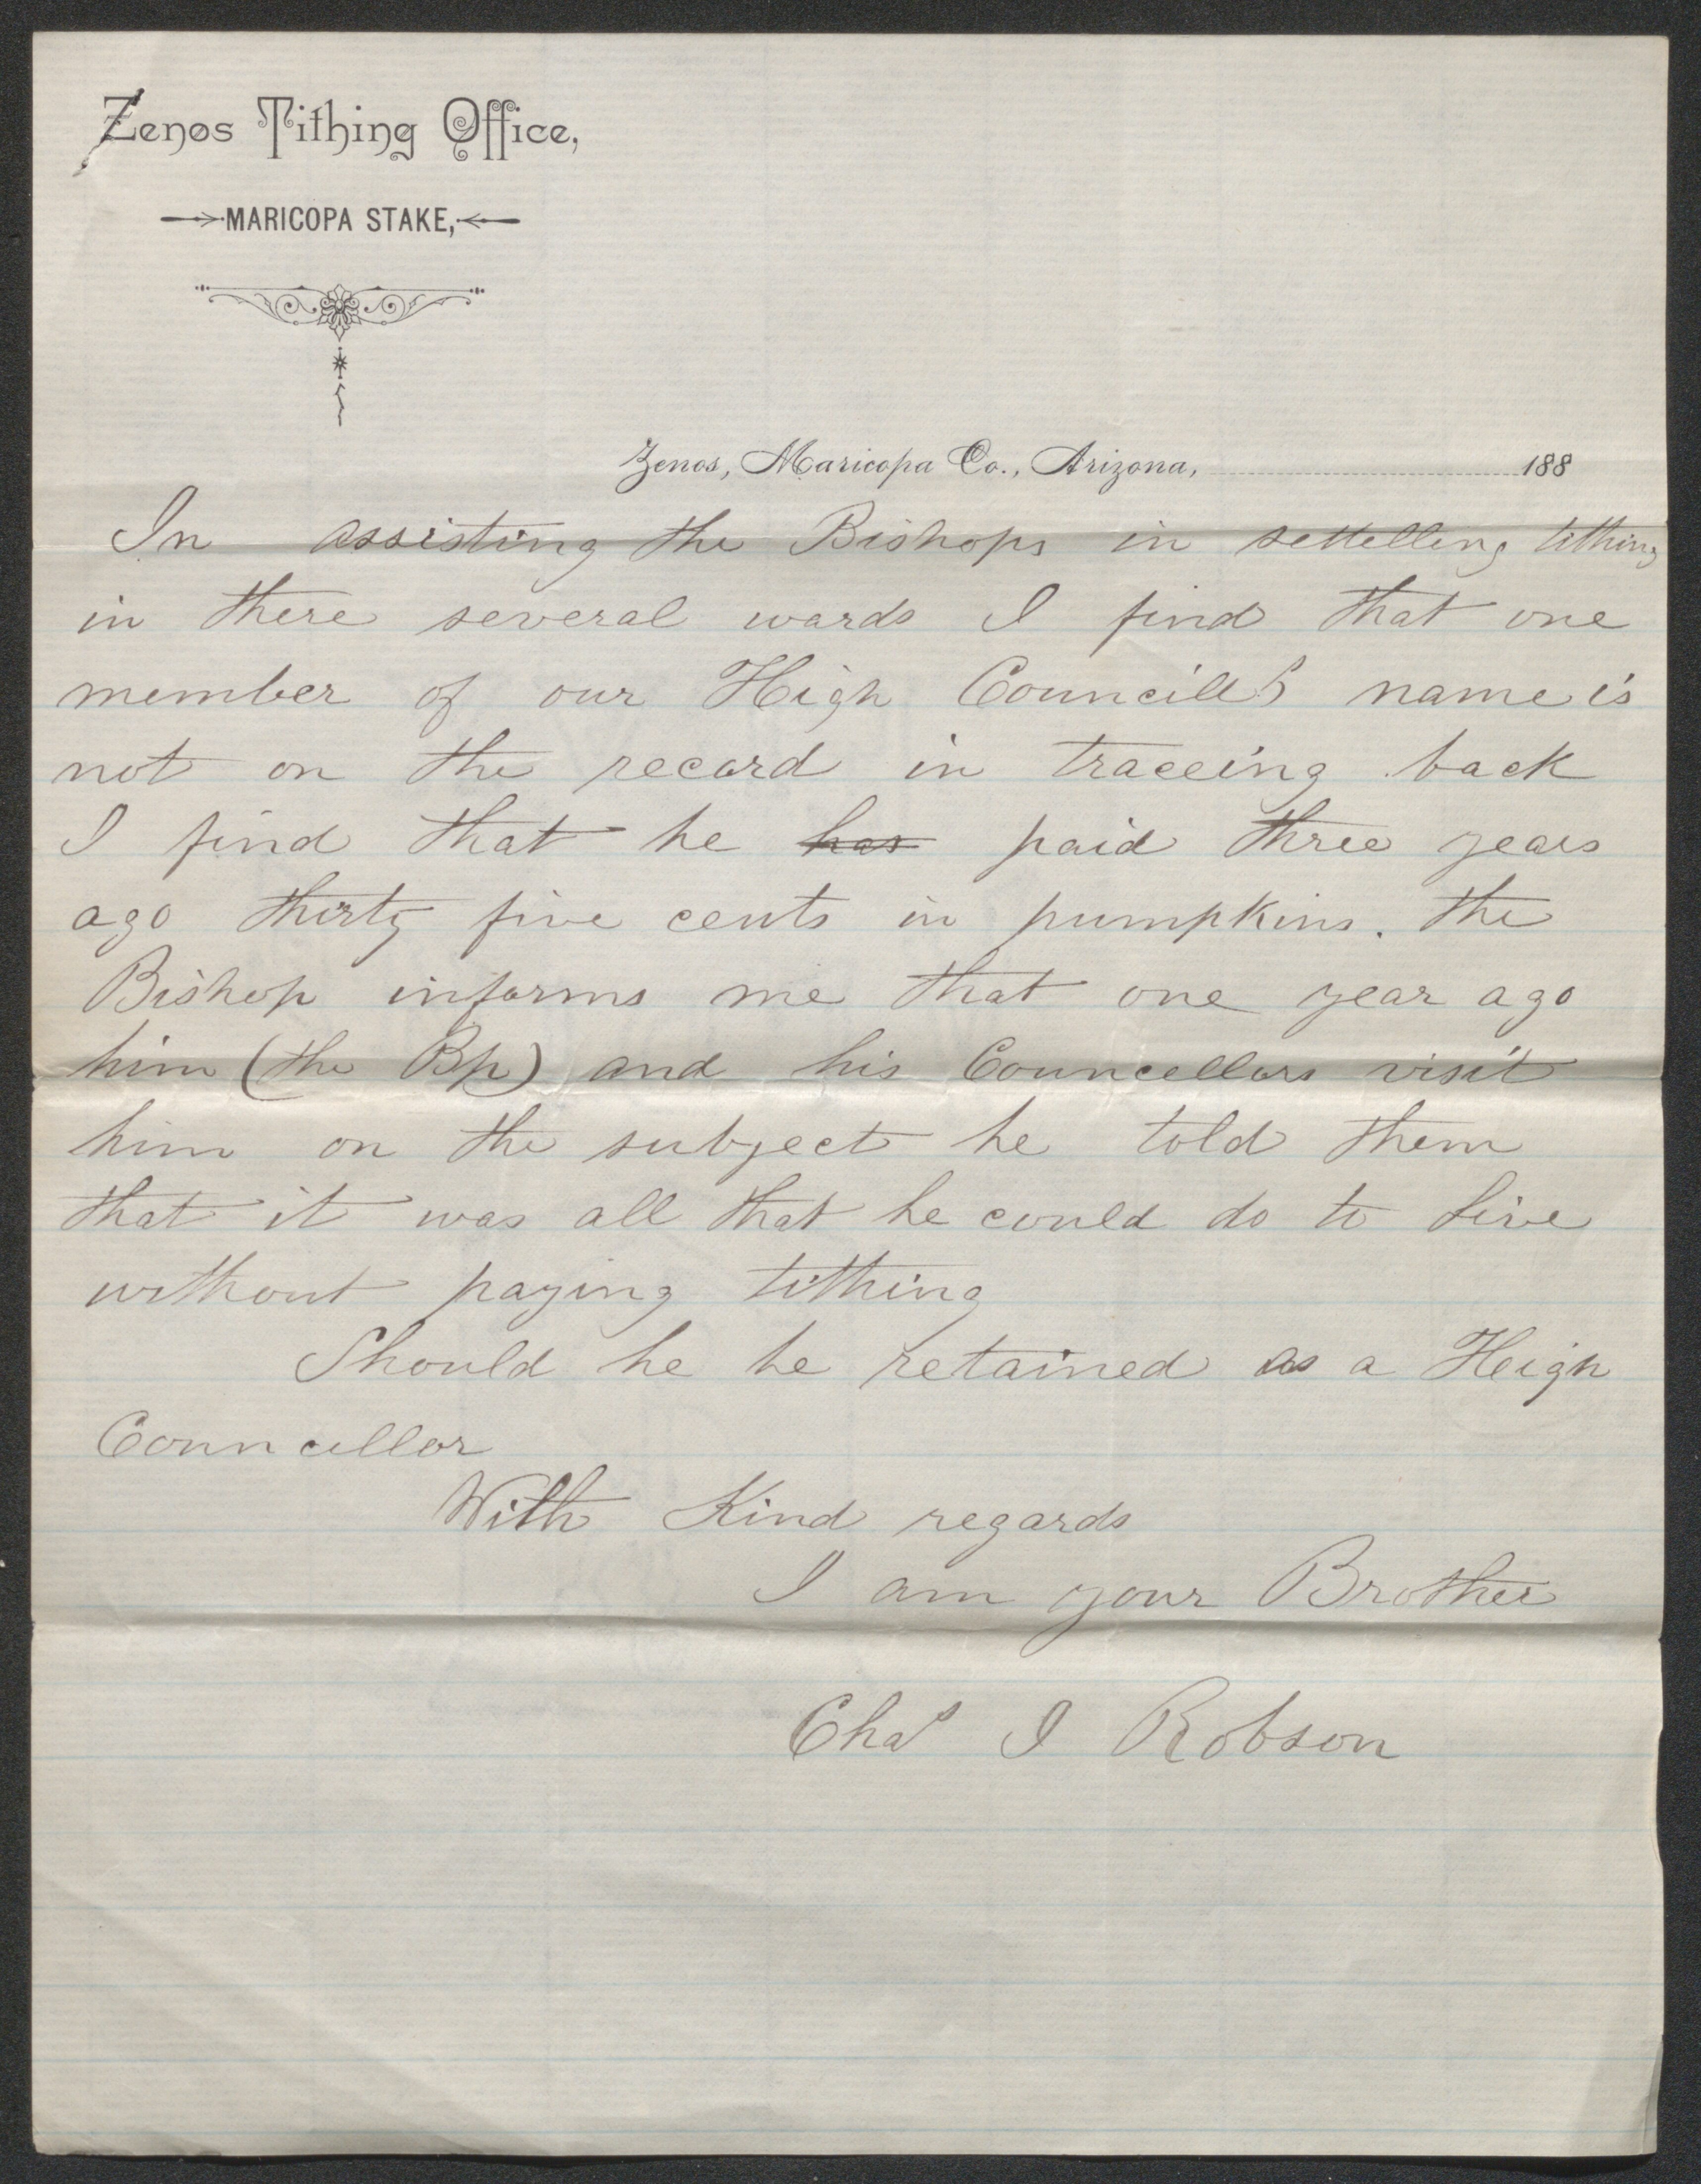 Zenos Tithing Office,
MARICOPA STAKE,
Zenos, Maricopa Co., Arizona, 188
In assisting the Bishops in settelling tithing
in there several wards I find that one
member of our High Councills name is
not on the record in traceing back
I find that he has paid three years
ago thirty five cents in pumpkins. the
Bishop informs me that one year ago
him (the Bp) and his Councellors visit
him on the subject he told them
that it was all that he could do to live
without paying tithing
Should he be retained as a Heigh
Councellor
With Kind regards
I am your Brother
Chas I Robson